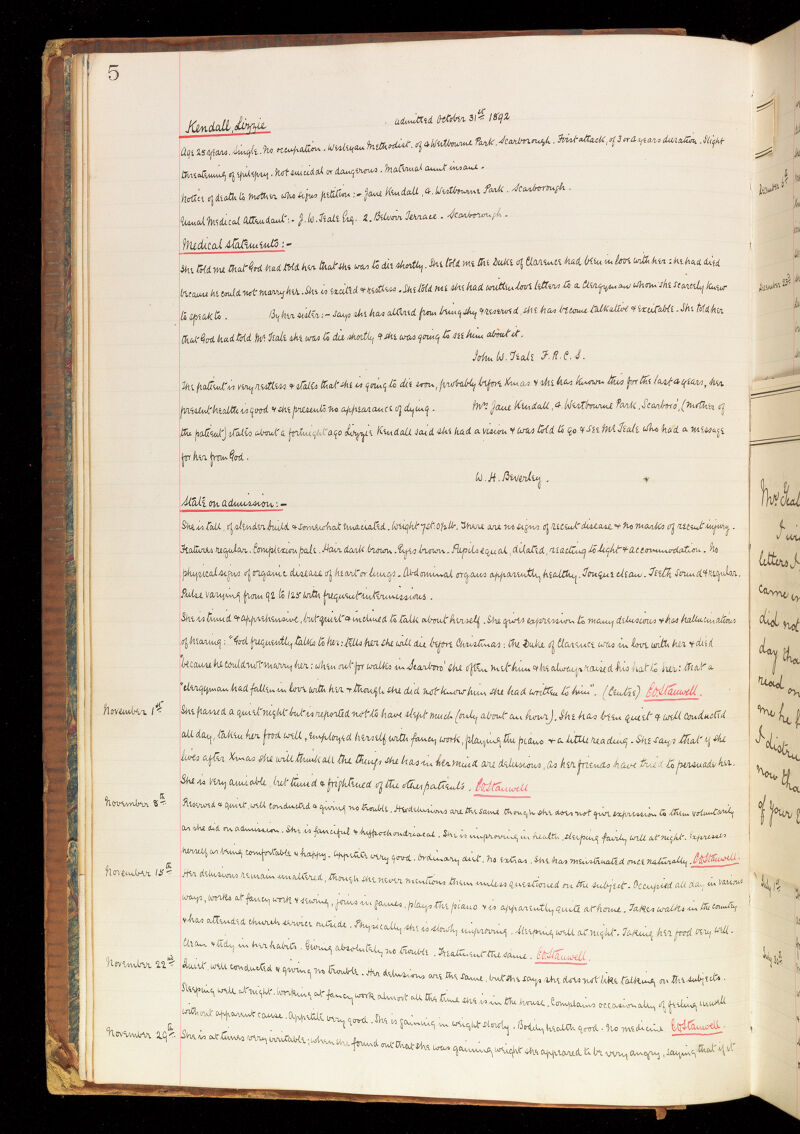 5
Kendall, Lizzie admitted October 31st 1892
Age 25 years. Single. No occupation. Wesleyan Methodist. of 4 Westbourne Park, Scarborough. First attack, of 3 or 4 years duration. Slight
threatening of epilepsy. Not suicidal or dangerous. Maternal aunt insane.
Notice of death to mother who signs petition:- Jane Kendall, 4. Westbourne Park. Scarborough.
Usual Medical Attendant:- J. W. Teale Esq. 2. Belvoir Terrace. Scarborough.
Medical Statements:-
She told me that God had told her that she was to die shortly. She told me the Duke of Clarence had been in love with her: he had died
because he could not marry her. She is excited & restless. She told me she had written love letters to a Clergyman whom she scarcely knew
to speak to. By her sister:- says she has altered from being shy & reserved, she has become talkative & excitable. She told her
that God had told Mr Teale she was to die shortly & she was going to see him about it.
John W. Teale F.R.C.S.
The patient is very restless & states that she is going to die soon, probably before Xmas & she has known this for the last 4 years, her
present health is good & she presents no appearance of dying. Mrs Jane Kendall, 4. Westbourne Park, Scarboro', (mother of
the patient) states about a fortnight ago Lizzie Kendall said she had a vision & was told to go & see Mr Teale who had a message
for her from God.
W. H. Beverley.
State on admission:-
She is tall, of slender build & somewhat emaciated. Weight 7st. 0½lb. There are no signs of recent disease & no marks of recent injury.
Features regular. Complexion pale. Hair dark brown. Eyes brown. Pupils equal, dilated, reacting to light & accommodation. No
physical signs of organic disease of heart or lungs. Abdominal organs apparently healthy. Tongue clean. Teeth sound & regular.
Pulse varying from 92 to 125 with frequent intermissions.
She is timid & apprehensive, but quiet & inclined to talk about herself. She gives expression to many delusions & has hallucinations
of hearing: "God frequently talks to her: tells her she will die before Christmas: the Duke of Clarence was in love with her & died
"because he could not marry her: when out for walks in Scarboro' she often met him & he always raised his hat to her: that a
"clergyman had fallen in love with her & though she did not know him she had written to him". (Centres) COStanwell.
November 1st She passed a quiet night but is reported not to have slept much (only about an hour). She has been quiet & well conducted
all day, taken her food well, employed herself with fancy work, playing the piano & a little reading. She says that if she
lives after Xmas she will think all the things she has in her mind are delusions, as her friends have tried to persuade her.
She is very amiable, but timid & frightened of the other patients. COStanwell
November 8th Reserved & quiet, well conducted & giving no trouble. Her delusions are the same though she does not give expression to them voluntarily
as she did on admission. She is fanciful & hypochondriacal. She is improving in health, sleeping fairly well at night. Expresses
herself as being comfortable & happy. Appetite very good. Ordinary diet. No extras. She has menstruated once naturally. COStanwell.
November 15th Her delusions remain unaltered, though she never mentions them unless questioned on the subject. Occupied all day in various
ways, works at fancy work & sewing, joins in games, plays the piano & is apparently quite at home. Takes walks in the country
& has attended church service outside. Physically she is slowly improving. Sleeping well at night. Taking her food very well.
Clean & tidy in her habits. Giving absolutely no trouble. Treatment the same. COStanwell.
November 22nd Quiet, well conducted & giving no trouble. Her delusions are the same, but she says she does not like talking on the subjects.
Sleeping well at night. Working at fancy work almost all the time she is in the house. Complains occasionally of feeling unwell
without apparent cause. Appetite very good. She is gaining in weight slowly. Bodily health good. No medicine COStanwell.
November 29th She is at times very irritable; when she found out that she was gaining weight she appeared to be very angry, saying that if it
December 6th
December 23rd
Mrs Teal
letters I
came
did not
day tha
read on
me he
I distru
now tha
of your
July 1st
July 31st